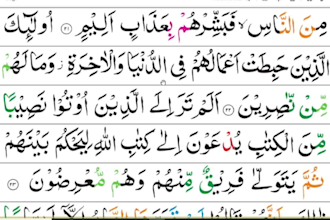 مِنَ النَّاسِ ۙ فَبَشِّرْهُمْ بِعَذَابٍ اَلِيْمٍ ﴿۲۱﴾ اُولٰٓئِكَ
الَّذِيْنَ حَبِطَتْ اَعْمَالُهُمْ فِي الدُّنْيَا وَالْاٰخِرَةِ ؗ وَمَا لَهُمْ
مِّنْ نّٰصِرِيْنَ ﴿۲۲﴾ اَلَمْ تَرَ اِلَى الَّذِيْنَ اُوْتُوْا نَصِيْبًا
مِّنَ الْكِتٰبِ يُدْعَوْنَ اِلٰى كِتٰبِ اللّٰهِ لِيَحْكُمَ بَيْنَهُمْ
ثُمَّ يَتَوَلّٰى فَرِيْقٌ مِّنْهُمْ وَهُمْ مُّعْرِضُوْنَ ﴿۲۳﴾